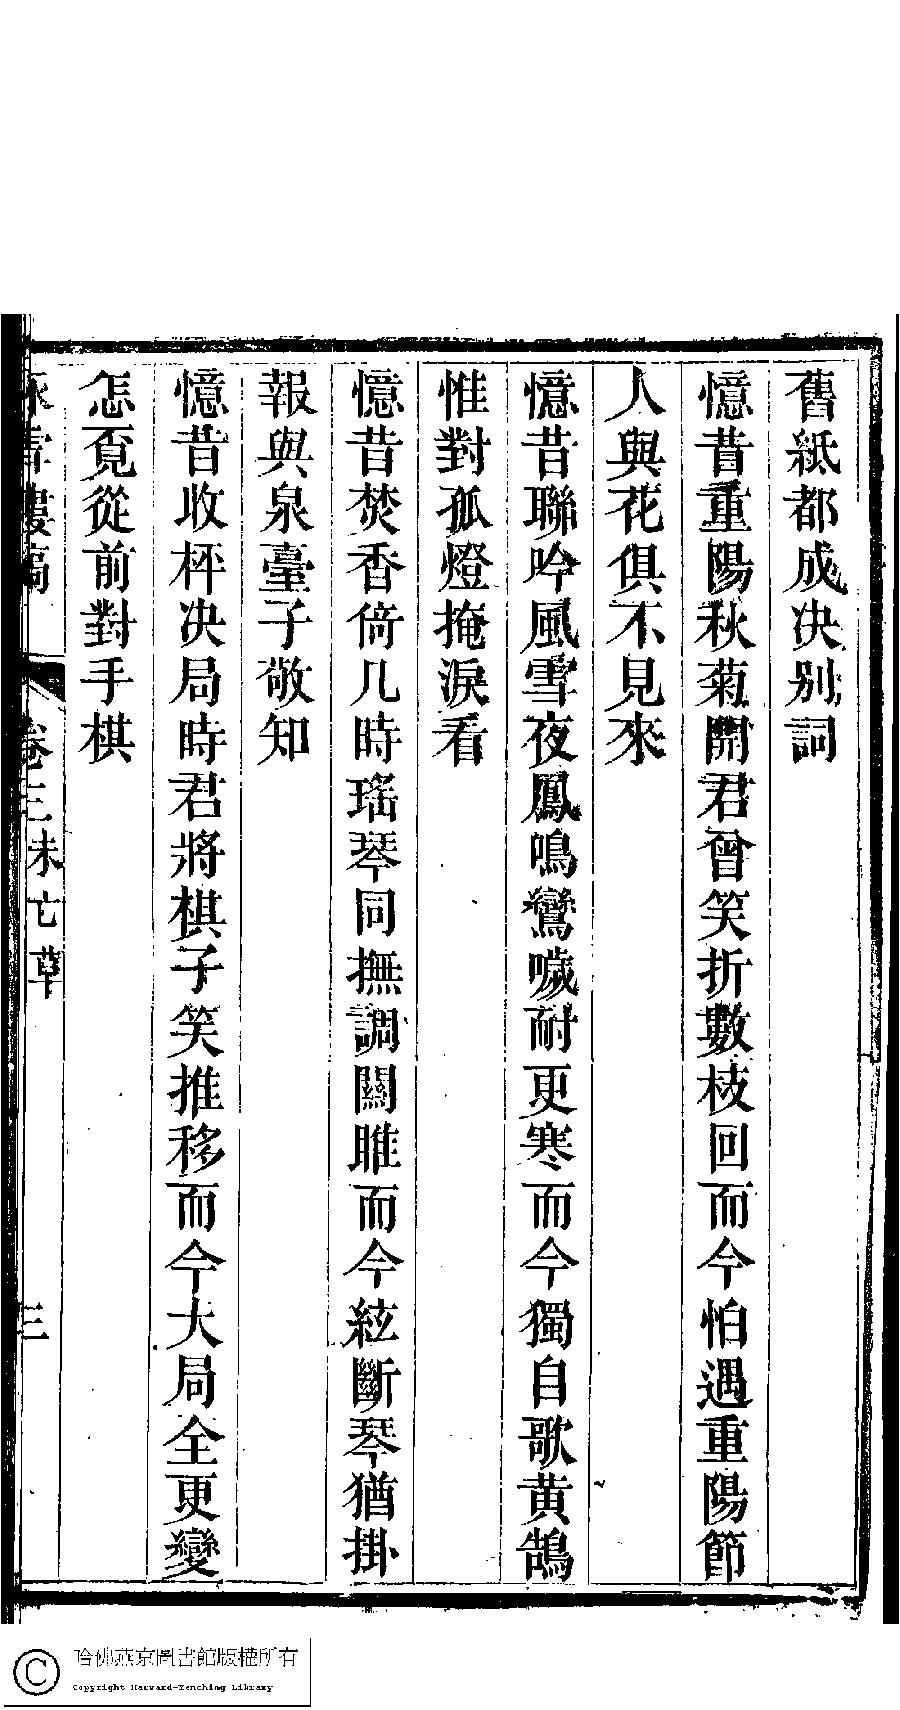 舊紙都成決別詞
憶昔重陽秋菊開君曾笑折數枝回而今怕遇重陽節
人與花俱不見來
憶昔聯吟風雪夜鳳鳴鸞噦耐更寒而今獨自歌黃鵠
惟對孤燈掩淚看
憶昔焚香倚几時瑤琴同撫調關雎而今絃斷琴猶掛
報與泉臺子敬知
憶昔收枰決局時君將棋子笑推移而今大局全更變
怎覔從前對手棋
雪樓稿
卷三未亡草
三
哈佛燕京圖書館版權所有
Copyright Harvard-Yenching Library